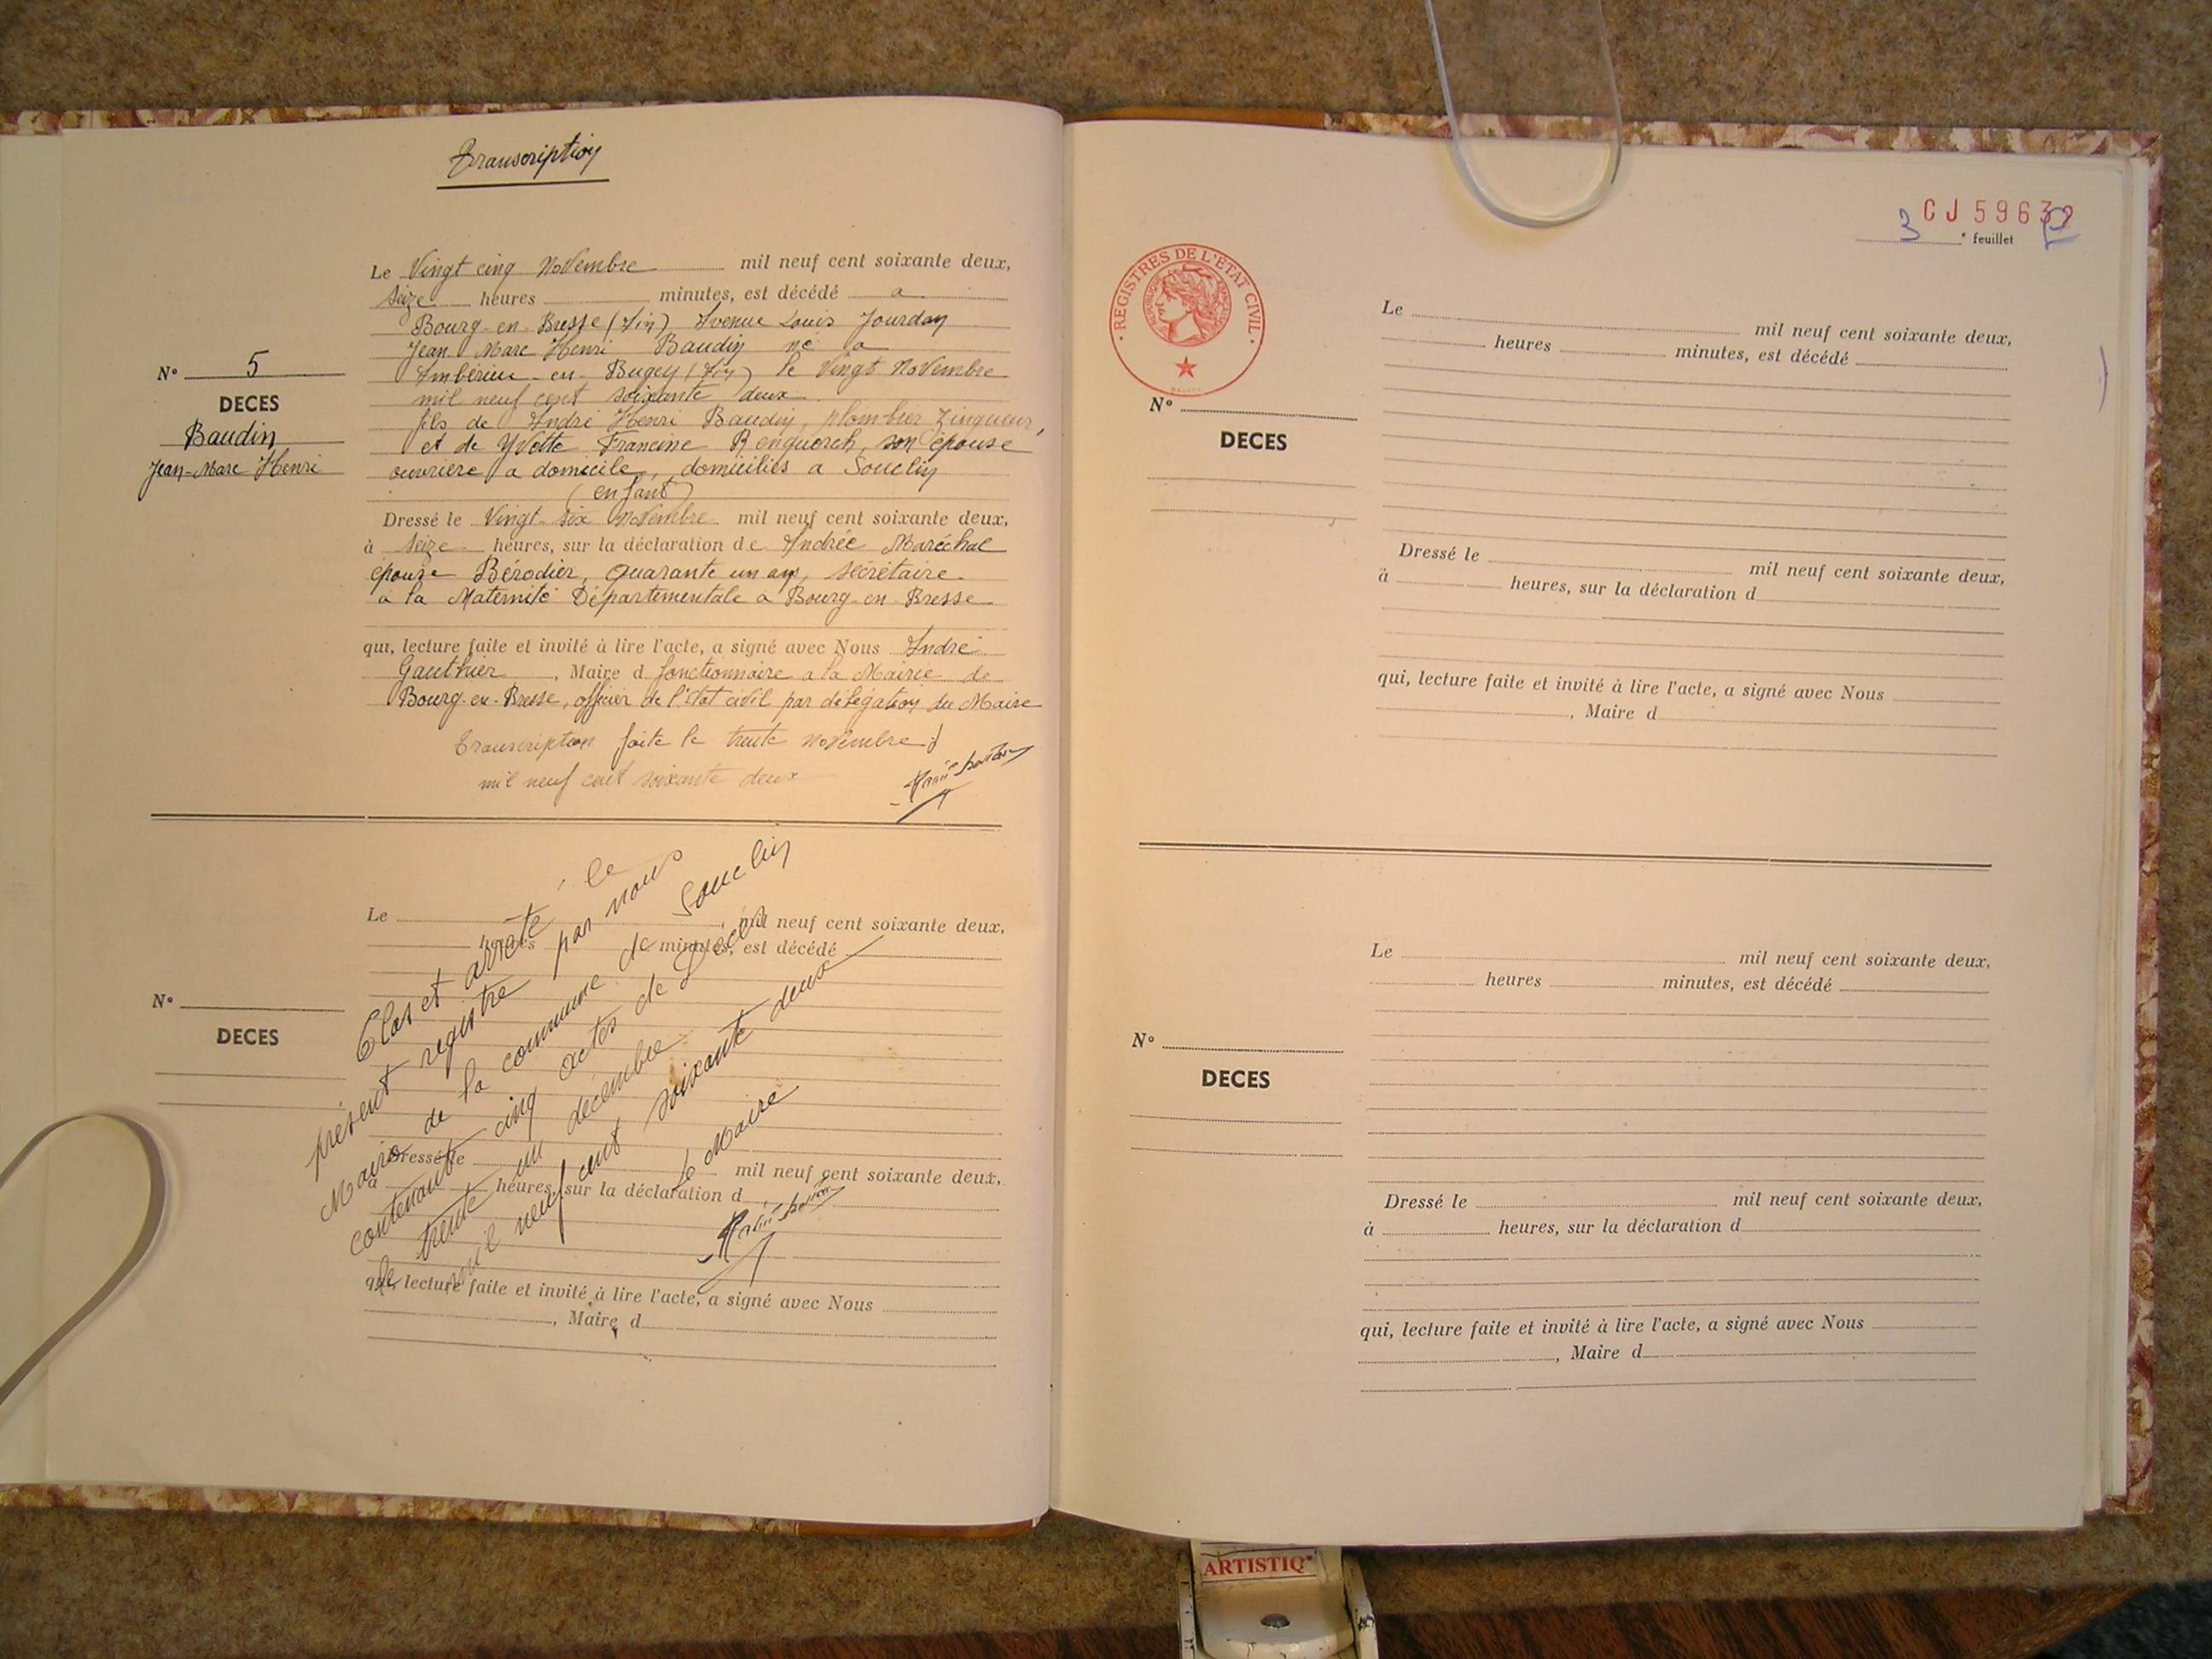 Transcription
Le Vingt cinq Novembre mil neuf cent soixante deux,
seize heures minutes, est décédé a
Bourg-en-Bresse (Ain) Avenue Louis Jourdan
Jean Marc Henri Baudin né a
Ambérieu-en-Bugey (Ain) le Vingt Novembre
mil neuf cent soixante deux
fils de André Henri Baudin, plombier Zingueur,
et de Yvette Francine Renquorch, son épouse
ouvrière a domicile, domiciliés a Souclin
(enfant)
N° 5
DECES
Baudin
Jean-Marc Henri
Dressé le Vingt-six Novembre mil neuf cent soixante deux,
à seize heures, sur la déclaration de Andrée Maréchal
épouse Bérodier, quarante un ans, secrétaire
a la Maternité Départementale a Bourg-en-Bresse
qui, lecture faite et invité à lire l'acte, a signé avec Nous André
Gauthier, Maire d fonctionnaire a la Mairie de
Bourg-en-Bresse, officier de l'état civil par délégation du Maire
Transcription faite le trente Novembre
mil neuf cent soixante deux
Le mil neuf cent soixante deux,
heures minutes, est décédé
N°
DECES
Dressé le mil neuf cent soixante deux,
à heures, sur la déclaration d
qui, lecture faite et invité à lire l'acte, a signé avec Nous
, Maire d
Clos et arrêté le
présent registre par nous
Maire de la commune de Souclin
contenant cinq actes de Décès
le trente un décembre
mil neuf cent soixante deux
le Maire
CJ 5963
3e feuillet
REGISTRES DE L'ETAT CIVIL
Le mil neuf cent soixante deux,
heures minutes, est décédé
N°
DECES
Dressé le mil neuf cent soixante deux,
à heures, sur la déclaration d
qui, lecture faite et invité à lire l'acte, a signé avec Nous
, Maire d
Le mil neuf cent soixante deux,
heures minutes, est décédé
N°
DECES
Dressé le mil neuf cent soixante deux,
à heures, sur la déclaration d
qui, lecture faite et invité à lire l'acte, a signé avec Nous
, Maire d
ARTISTIQ